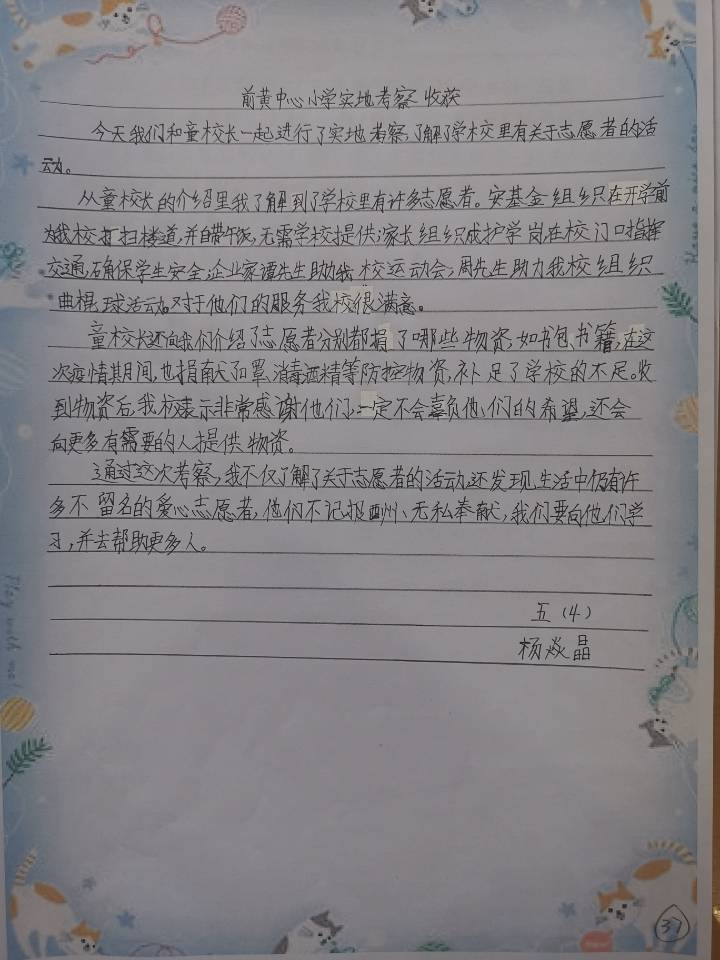 前黄中心小学实地考察收获
今天我们和童校长一起进行了实地考察,了解了学校里有关于志愿者的活
动。
从童校长的介绍里我了解到了学校里有许多志愿者。安基金组织在开学前
为我校打扫楼道,并自带午饭,无需学校提供;家长组织成护学岗,在校门口指挥
交通,确保学生安全;企业家谭先生助力我校运动会,周先生助力我校组织
曲棍球活动。对于他们的服务我校很满意。
童校长还向我们介绍了志愿者分别都捐了哪些物资,如书包、书籍,在这
次疫情其期间,也捐献了口罩、消毒酒精等防控物资,补足了学校的不足。收
到物资后,我校表示非常感谢他们,一定不会辜负他们的希望,还会
向更多有需要的人提供物资。
通过这次考察,我不仅了解了关于志愿者的活动,还发现,生活中仍有许
多不留名的爱心志愿者,他们不记报酬、无私奉献,我们要向他们学
习,并去帮助更多人。
五(4)
杨焱晶
37